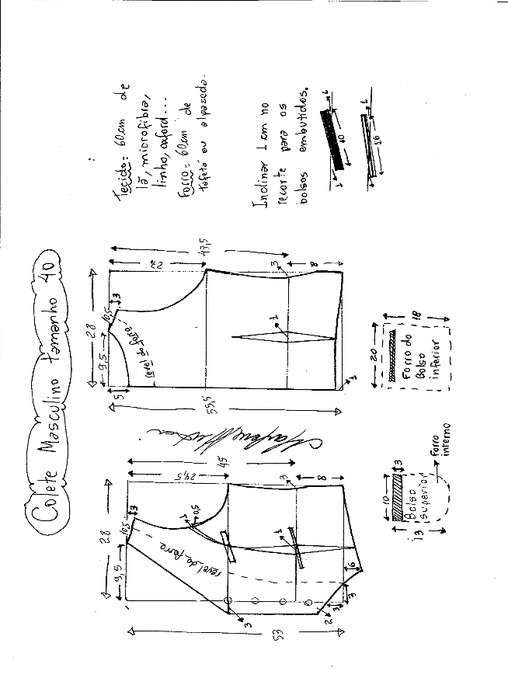 Colete Masculino tamanho 40
Tecido = 60cm de
lã, microfibra,
linho, oxford...
Forro = 60cm de
tafetá ou alpaseda.
Inclinar 1 cm no
recorte para os
bolsos embutidos.
1
10
1
1
16
1
47,5
22
3
8
3
10,5
28
9,5
5
revel do forro
1
1
55,5
20
18
Forro do
Bolso
inferior
45
24,5
3
8
3
10,5
28
9,5
0,5
1
revel do forro
1
6
3
3
2
3
53
10
3
Bolso
superior
13
Forro
interno